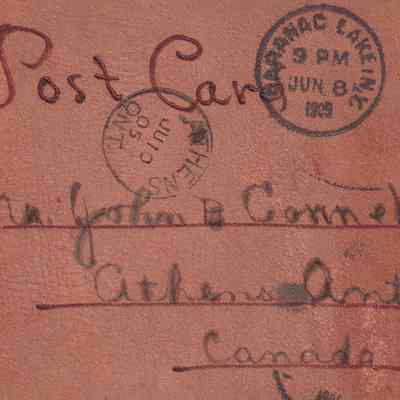 Post Card
SARANAC LAKE N.Y.
9 PM
JUN 8
1909
ATHENS
JU 10
05
ONT.
John B Connel
Athens Ant
Canada